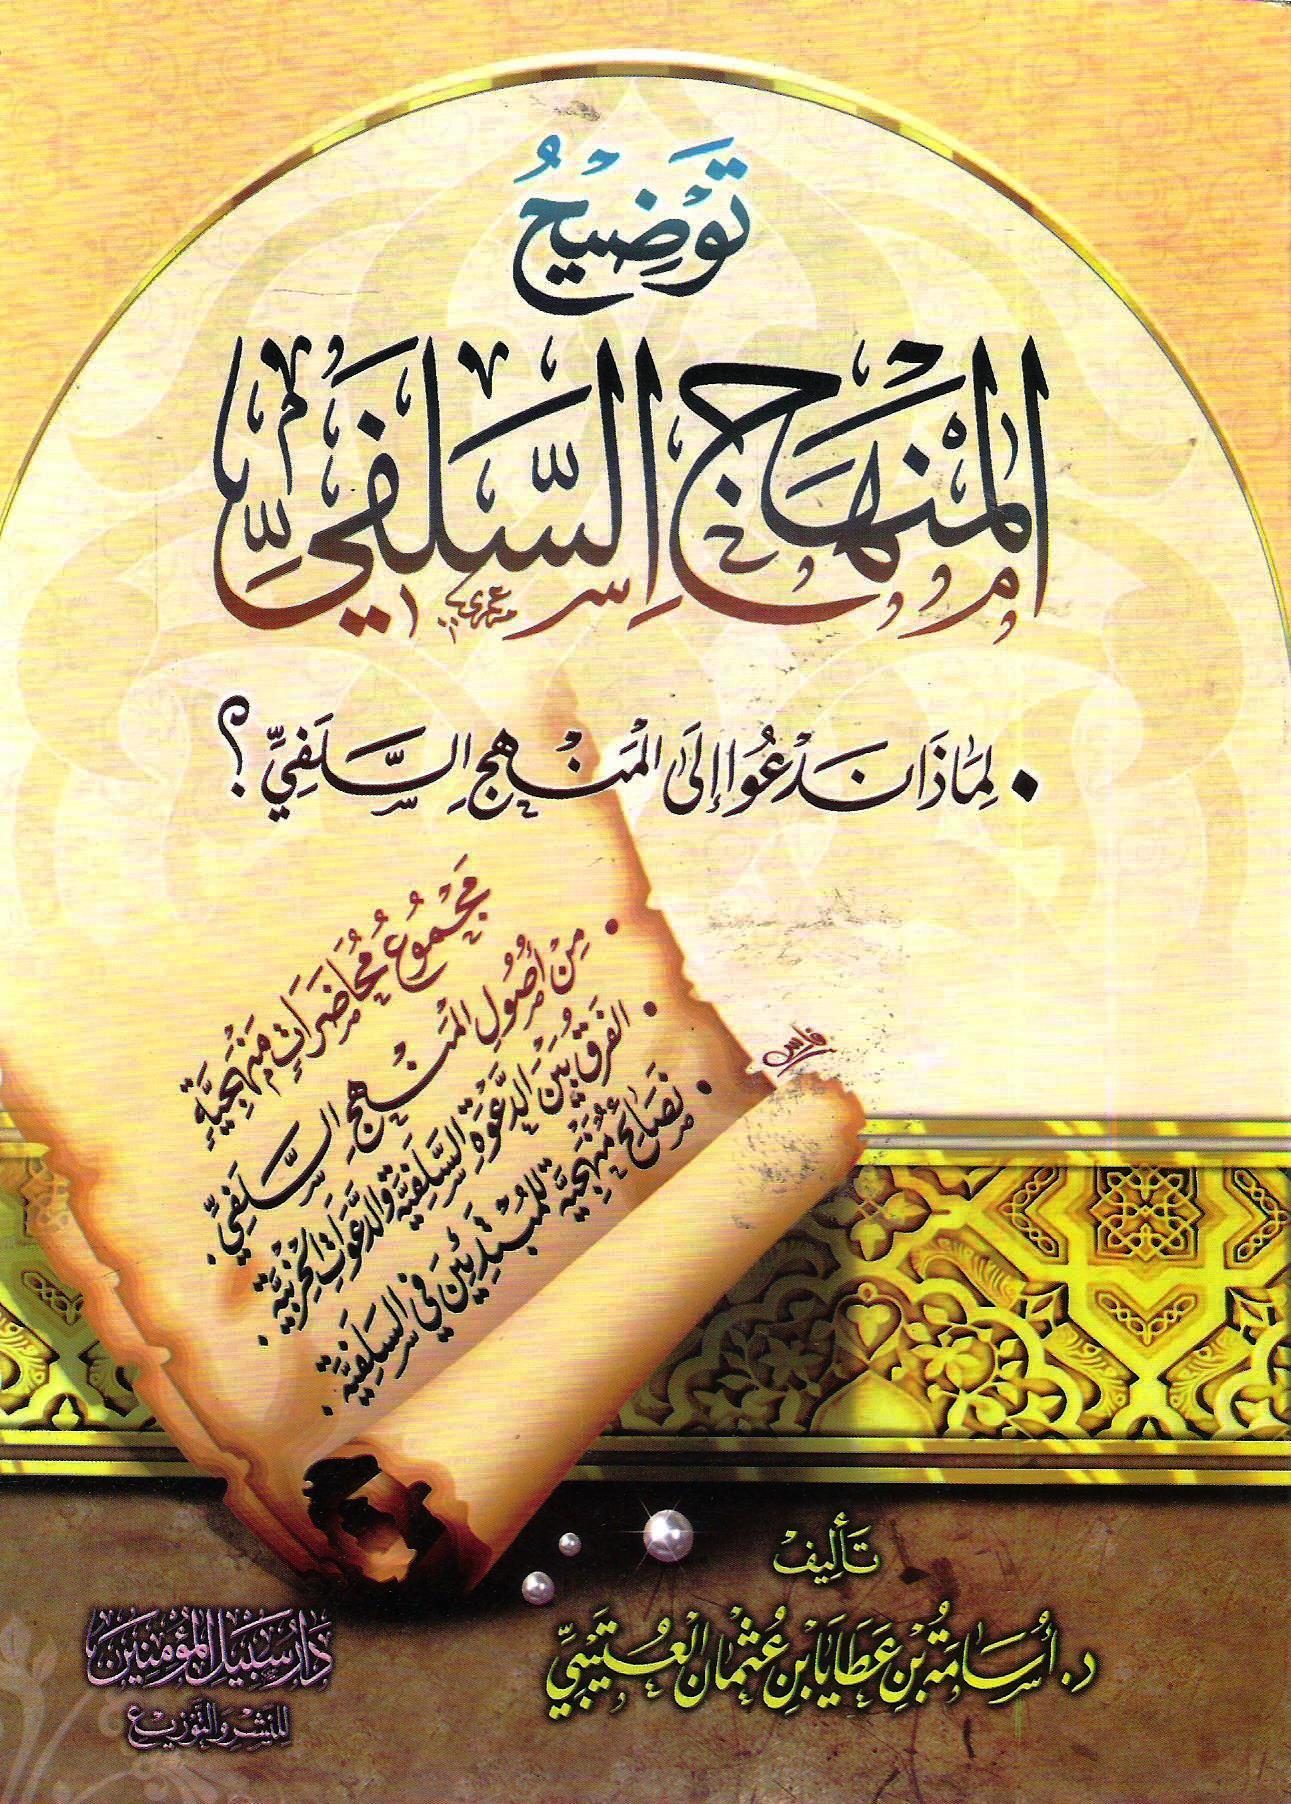 تَوْضِيحُ
المِنْهَاجِ السَّلَفِيِّ
• لِمَاذَا نَدْعُوا إِلَى المَنْهَجِ السَّلَفِيِّ؟
مَجْمُوعُ مُحَاضَرَاتٍ مَنْهَجِيَّةٍ
• مِنْ أُصُولِ المَنْهَجِ السَّلَفِيِّ.
• الفَرَقُ بَيْنَ الدَّعْوَةِ السَّلَفِيَّةِ وَالدَّعَوَاتِ الحِزْبِيَّةِ.
• نَصَائِحُ مَنْهَجِيَّة لِلمُبْتَدِئِينَ فِي السَّلَفِيَّةِ.
فارس
تَأْلِيفُ
د. أُسَامَةُ بْنِ عَطَايَا بْنِ عُثْمَانَ العُتَيْبِيِّ
دَارُ سَبِيلِ المُؤْمِنِينَ
لِلنَّشْرِ وَالتَّوْزِيعِ